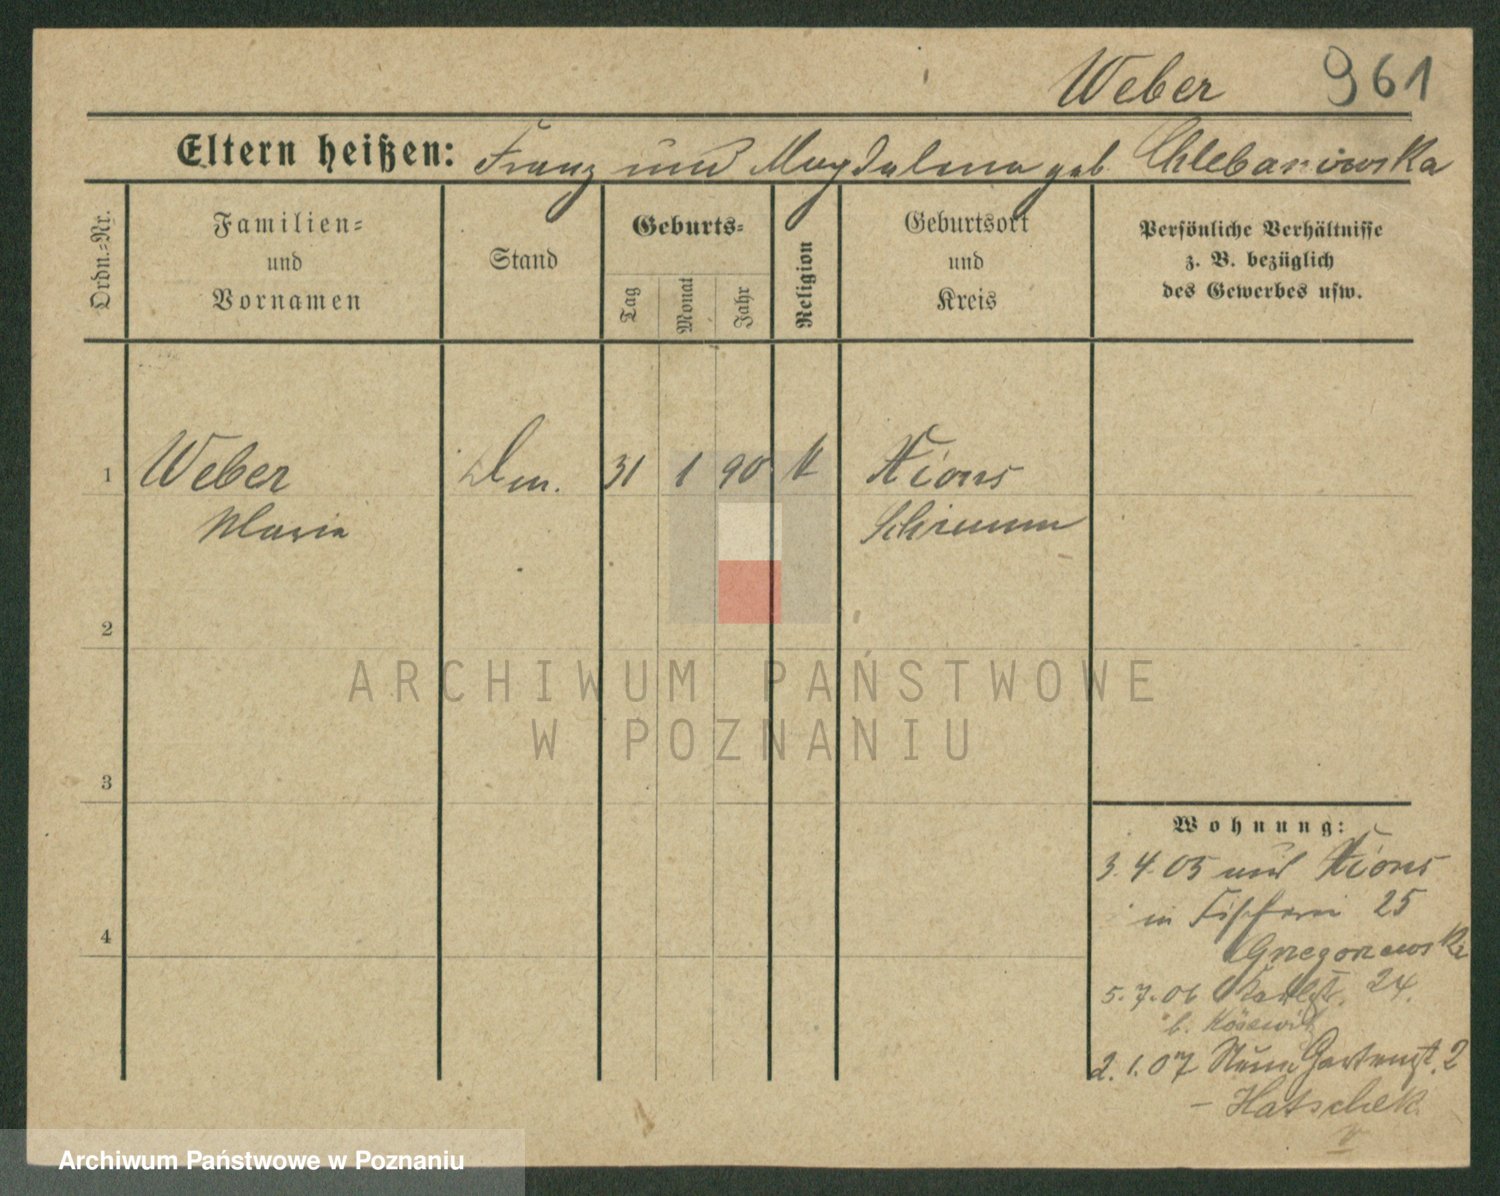 Weber 961
Eltern heißen: Franz und Magdalena geb. Chlebanowska
Ordn.=Nr.
Familien=
und
Vornamen
Stand
Geburts=
Tag
Monat
Jahr
Religion
Geburtsort
und
Kreis
Persönliche Verhältnisse
z. B. bezüglich
des Gewerbes usw.
1 Weber 31 1 90 k Xions
Maria Schrimm
2
3
4
Wohnung:
3. 4. 05 aus Xions
in Fischerei 25
5. 7. 06 24.
b.
2. 1. 07 Gartenst. 2
– Hatschek
ARCHIWUM PAŃSTWOWE
W POZNANIU
Archiwum Państwowe w Poznaniu